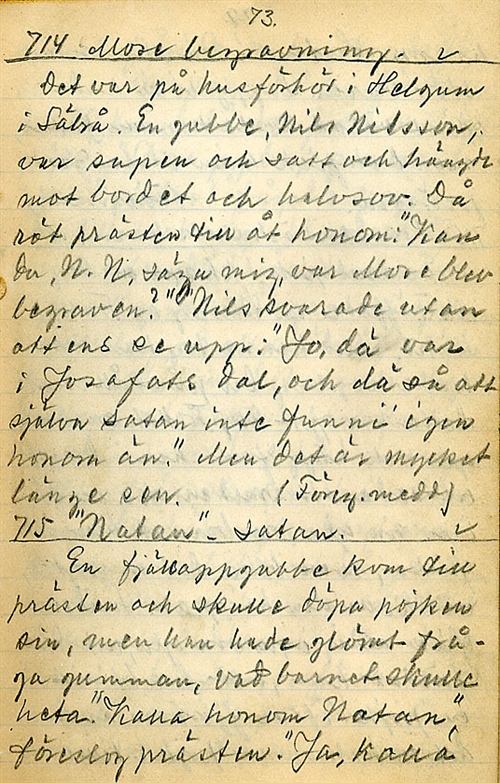 73.
714 Mose begravning. v
Det var på husförhör i Helgum
i Sälså. En gubbe, Nils Nilsson,
var supen och satt och hängde
mot bordet och halvsov. Då
röt prästen till åt honom: "Kan
du, N. N, säga mig, var Mose blev
begraven?" "Nils svarade utan
att ens se upp: "Jo, då var
i Josafats dal, och dä så att
själva satan inte funni' igen
honom än." Men det är mycket
länge sen. (Föreg. medd)
715 "Natan" - satan. v
En fjällappgubbe kom till
prästen och skulle döpa pojken
sin, men han hade glömt frå-
ga gumman, vad barnet skulle
heta. "Kalla honom Natan",
föreslog prästen. "Ja, kalla